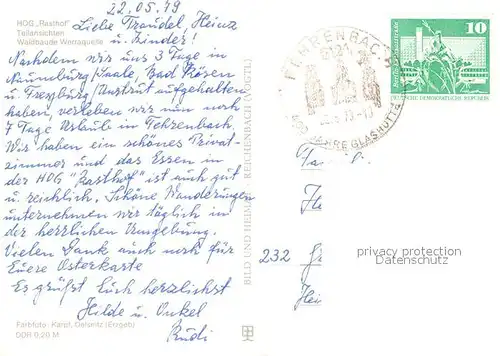 22.05.79
HOG „Rasthof"
Teilansichten
Waldbaude Werraquelle
Liebe Traudel, Heinz
u. Kinder!
Nachdem wir uns 3 Tage in
Naumburg/Saale, Bad Kösen
und Freyburg/Unstrut aufgehalten
haben, verleben wir nun noch
7 Tage Urlaub in Fehrenbach.
Wir haben ein schönes Privat-
zimmer und das Essen in
der HOG "Rasthof" ist auch gut
u. reichlich. Schöne Wanderungen
unternehmen wir täglich in
der herrlichen Umgebung.
Vielen Dank auch noch für
Euere Osterkarte
Es grüßt Euch herzlichst
Hilde u. Onkel
Rudi
Farbfoto: Karpf, Oelsnitz (Erzgeb)
DDR 0,20 M
BILD UND HEIMAT REICHENBACH (VOGTL)
FEHRENBACH
6121
JAHRE GLASHÜTTE
10
DEUTSCHE DEMOKRATISCHE REPUBLIK
Famil.
232
privacy protection
watermark